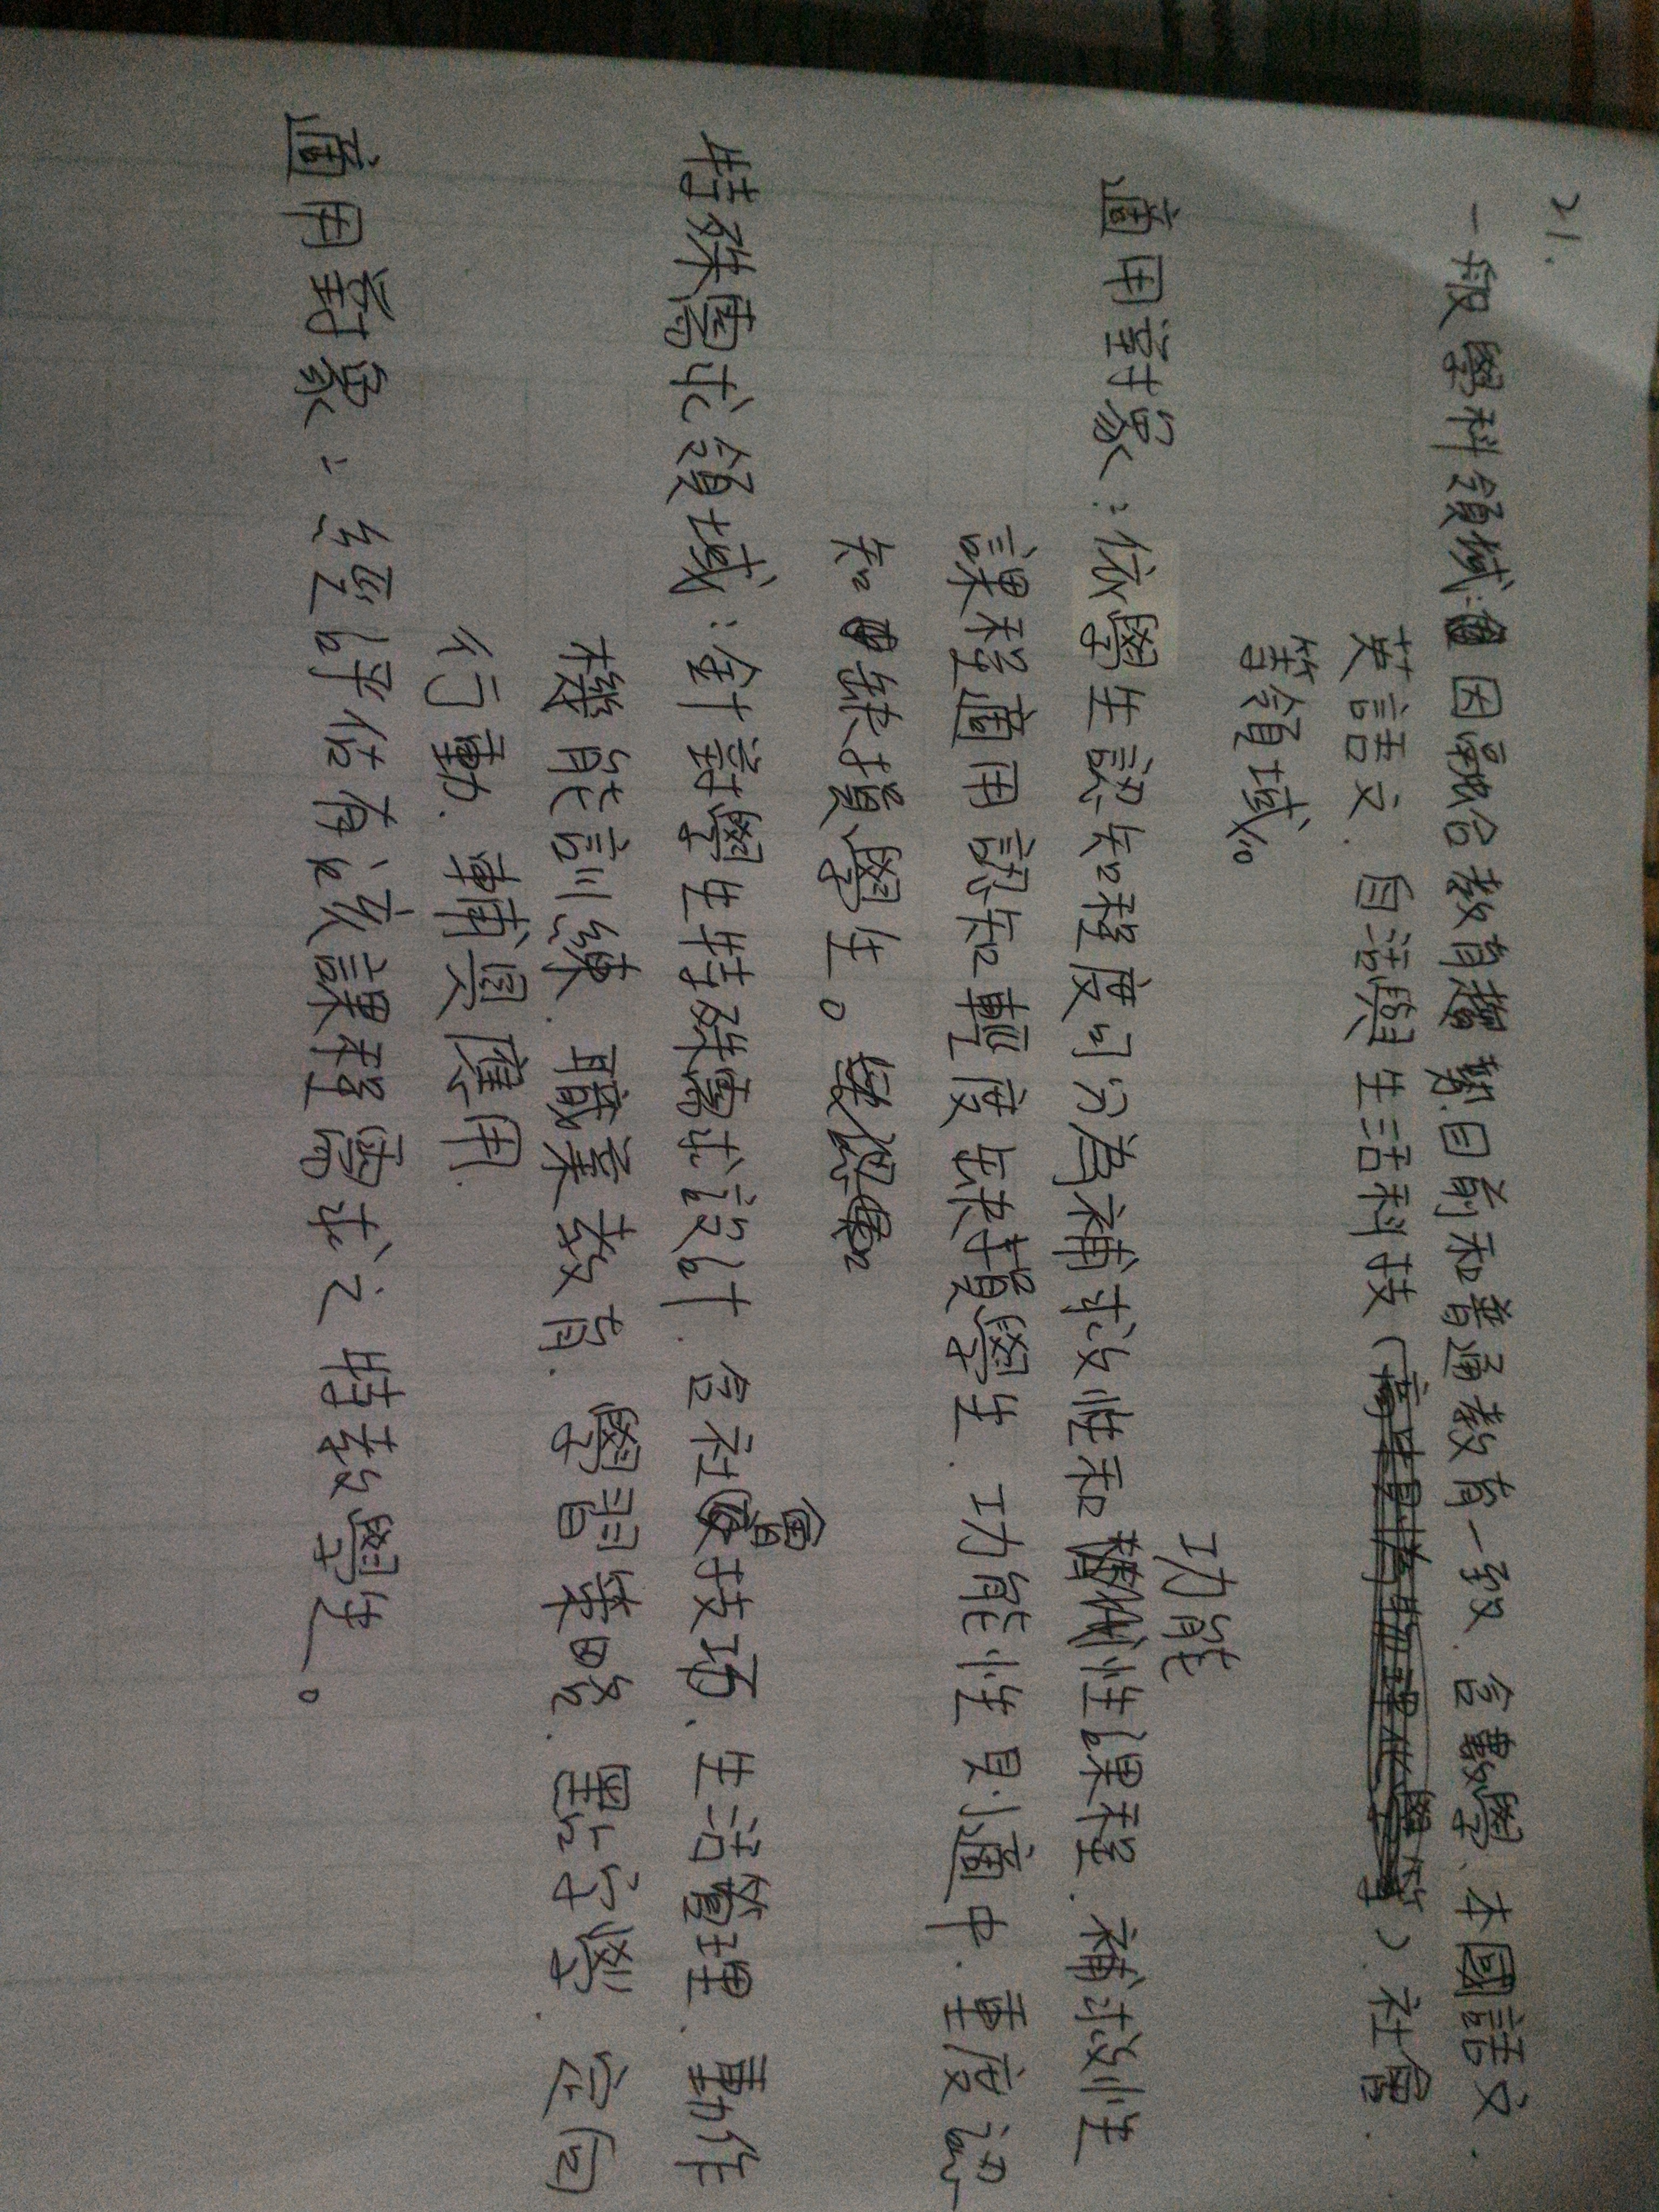 21.
一般學科領域:因融合教育趨勢.目前和普通教育一致.含數學、本國語文.
英語文.自活與生活科技()社會.
等領域。
適用對象:依學生認知程度可分為補救性和功能性課程.補救性
課程適用認知輕度缺損學生.功能性則適中.重度認
知缺損學生。
特殊需求領域:針對學生特殊需求設計.含社會技巧.生活管理.動作
機能訓練.職業教育.學習策略.點字學.定向
行動.輔具應用.
適用對象:經評估有該課程需求之特教學生。